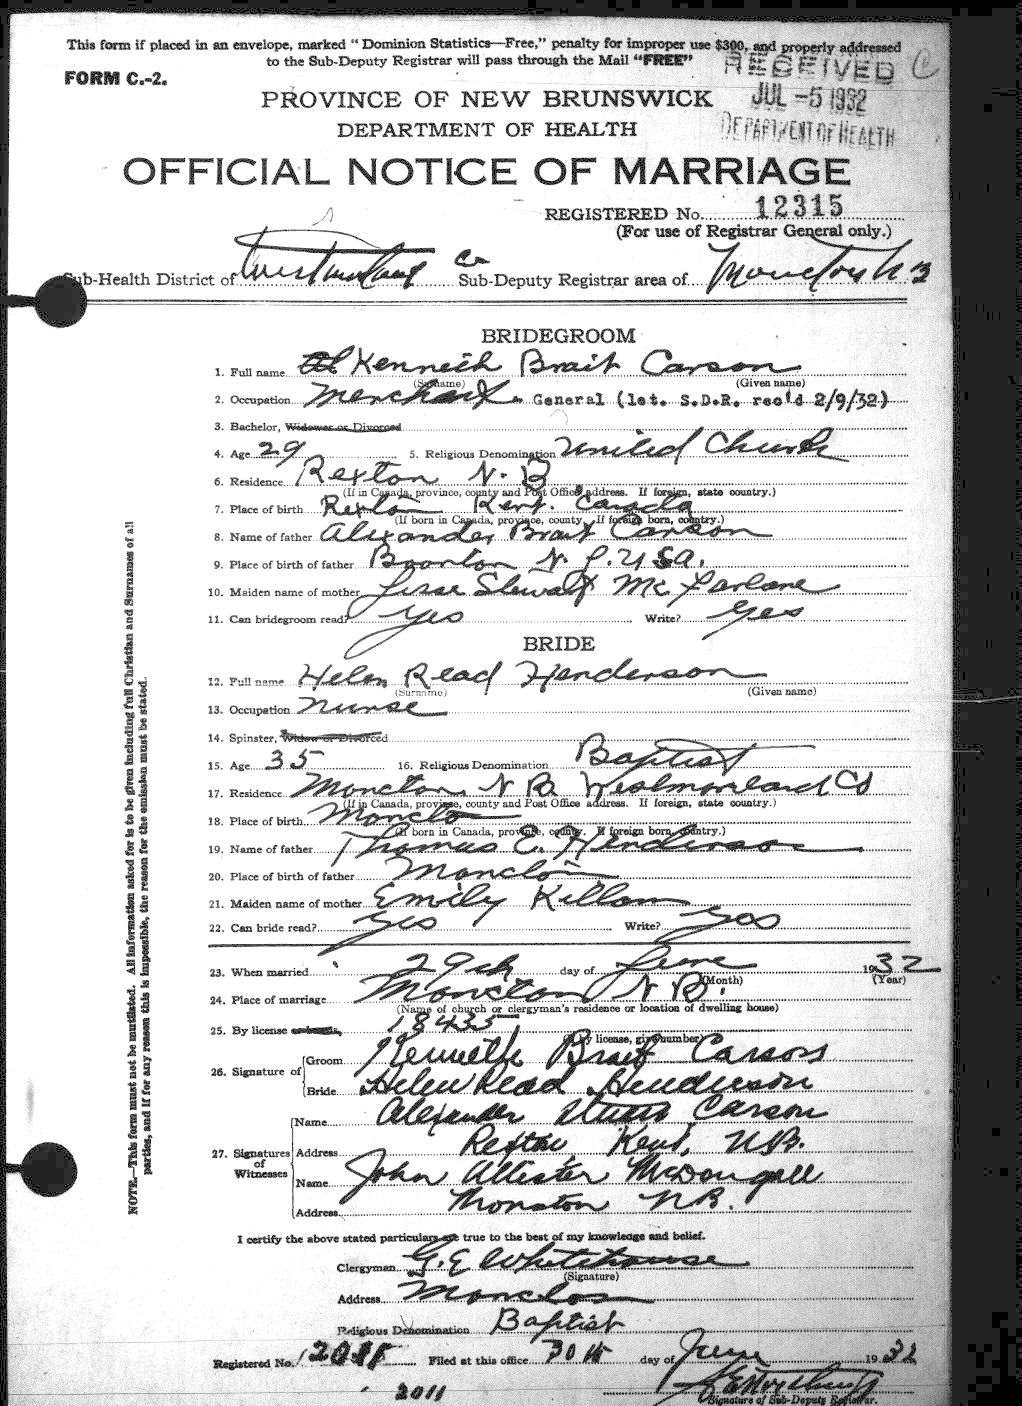 This form if placed in an envelope, marked “Dominion Statistics—Free,” penalty for improper use $300, and properly addressed
to the Sub-Deputy Registrar will pass through the Mail “FREE”
FORM C.-2.
RECEIVED C
JUL -5 1932
DEPARTMENT OF HEALTH
PROVINCE OF NEW BRUNSWICK
DEPARTMENT OF HEALTH
OFFICIAL NOTICE OF MARRIAGE
REGISTERED No. 12315
(For use of Registrar General only.)
Sub-Health District of Westmorland Co Sub-Deputy Registrar area of Moncton N B
BRIDEGROOM
1. Full name Kenneth Brait Carson
(Surname) (Given name)
2. Occupation Merchant - General (let. S.D.R. rec'd 2/9/32)
3. Bachelor, Widower or Divorced
4. Age 29 5. Religious Denomination United Church
6. Residence Rexton N. B
(If in Canada, province, county and Post Office address. If foreign, state country.)
7. Place of birth Rexton Kent. Canada
(If born in Canada, province, county. If foreign born, country.)
8. Name of father Alexander Brait Carson
9. Place of birth of father Boonton N. J. U.S.A.
10. Maiden name of mother Stewart McFarlane
11. Can bridegroom read? Yes Write? Yes
BRIDE
12. Full name Helen Read Henderson
(Surname) (Given name)
13. Occupation Nurse
14. Spinster, Widow or Divorced
15. Age 35 16. Religious Denomination Baptist
17. Residence Moncton N B. Westmorland Co
(If in Canada, province, county and Post Office address. If foreign, state country.)
18. Place of birth Moncton
(If born in Canada, province, county. If foreign born, country.)
19. Name of father Thomas E. Henderson
20. Place of birth of father Moncton
21. Maiden name of mother Emily Killam
22. Can bride read? Yes Write? Yes
23. When married 29th day of June 1932
(Month) (Year)
24. Place of marriage Moncton N B.
(Name of church or clergyman's residence or location of dwelling house)
25. By license 18435
(By license, give number)
26. Signature of Groom Kenneth Brait Carson
Bride Helen Read Henderson
27. Signatures of Witnesses Name Alexander Carson
Address Rexton Kent, N.B.
Name John Allister McDougall
Address Moncton N.B.
I certify the above stated particulars are true to the best of my knowledge and belief.
Clergyman G. E. Whitehouse
(Signature)
Address Moncton
Religious Denomination Baptist
Registered No. 2011 Filed at this office 30th day of June 1932
2011
Signature of Sub-Deputy Registrar.
NOTE.—This form must not be mutilated. All information asked for is to be given including full Christian and Surnames of all
parties, and if for any reason this is impossible, the reason for the omission must be stated.